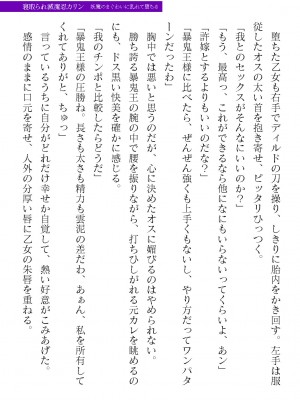 寝取られ滅魔忍カリン 妖魔のまぐわいに乱れて堕ちる
堕ちた乙女も右手でディルドの刀を操り、しきりに胎内をかき回す。左手は服
従したオスの太い首を抱き寄せ、ピッタリひっつく。
「我とのセックスがそんなにいいのか?」
「もう、最高っ、これができるなら他になにもいらないってくらいよ、あン」
「許嫁とするよりもいいのだな?」
「暴鬼王様に比べたら、ぜんぜん強くも上手くもないし、やり方だってワンパタ
ーンだったわ」
胸中では悪いと思うのだが、心に決めたオスに媚びるのはやめられない。
勝ち誇る暴鬼王の腕の中で腰を振りながら、打ちひしがれる元カレを眺めるの
にも、ドス黒い快美を確かに感じる。
「我のチンポと比較したらどうだ」
「暴鬼王様の圧勝ね。長さも太さも精力も雲泥の差だわ、あぁん、私を所有して
くれてありがと、ちゅっ」
言っているうちに自分がどれだけ幸せか自覚して、熱い好意がこみあげた。
感情のままに口元を寄せ、人外の分厚い唇に乙女の朱唇を重ねる。